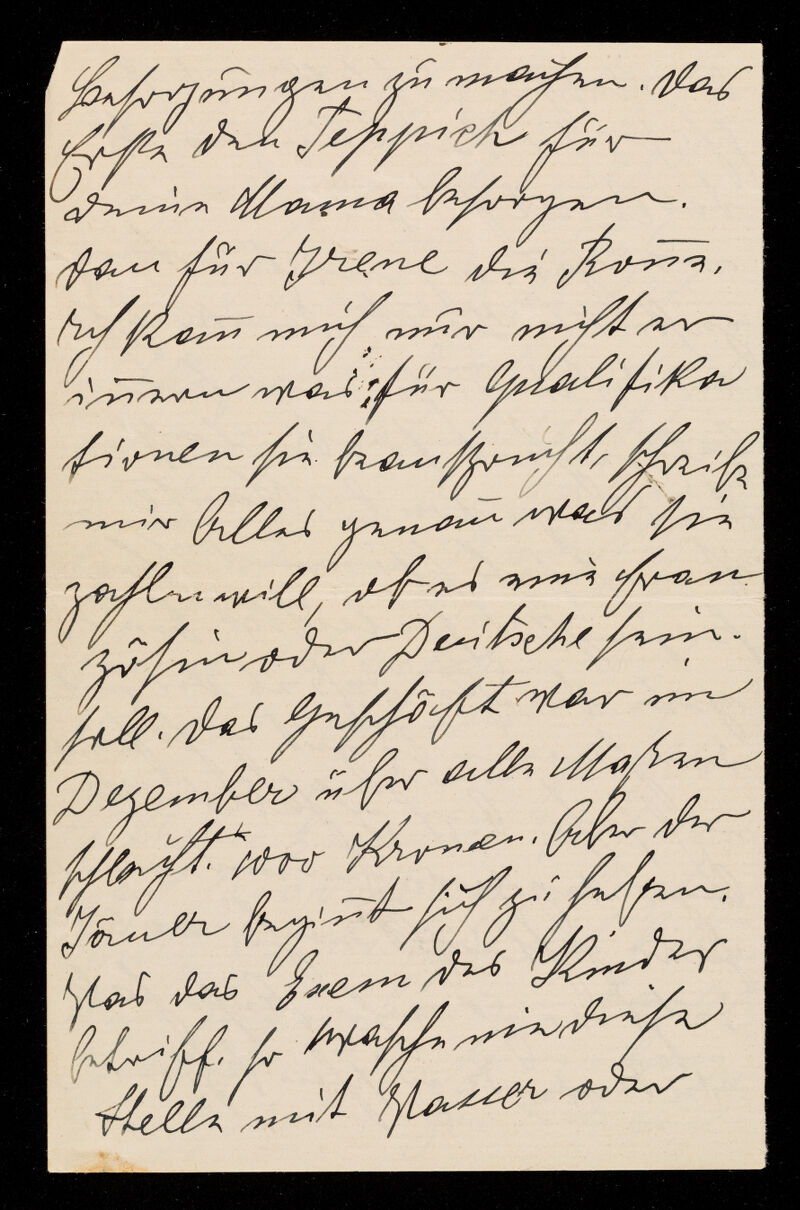 Besorgungen zu machen. Das
Erste den Teppich für
deine Mama besorgen.
dan für Irene die Bonne.
Ich kann mich nur nicht er
innern was für Qualifika
tionen sie beansprucht, schreibe
mir Alles genau was sie
zahlen will, ob es eine Fran
zösin oder Deutsche sein.
soll. Das Geschäft war im
Dezember über alle Maßen
schlecht. 1000 Kronen. Aber der
Jäner beginnt sich zu heben.
Was das Exem des Kindes
betriff. so wasche nie diese
Stelle mit Wasser oder